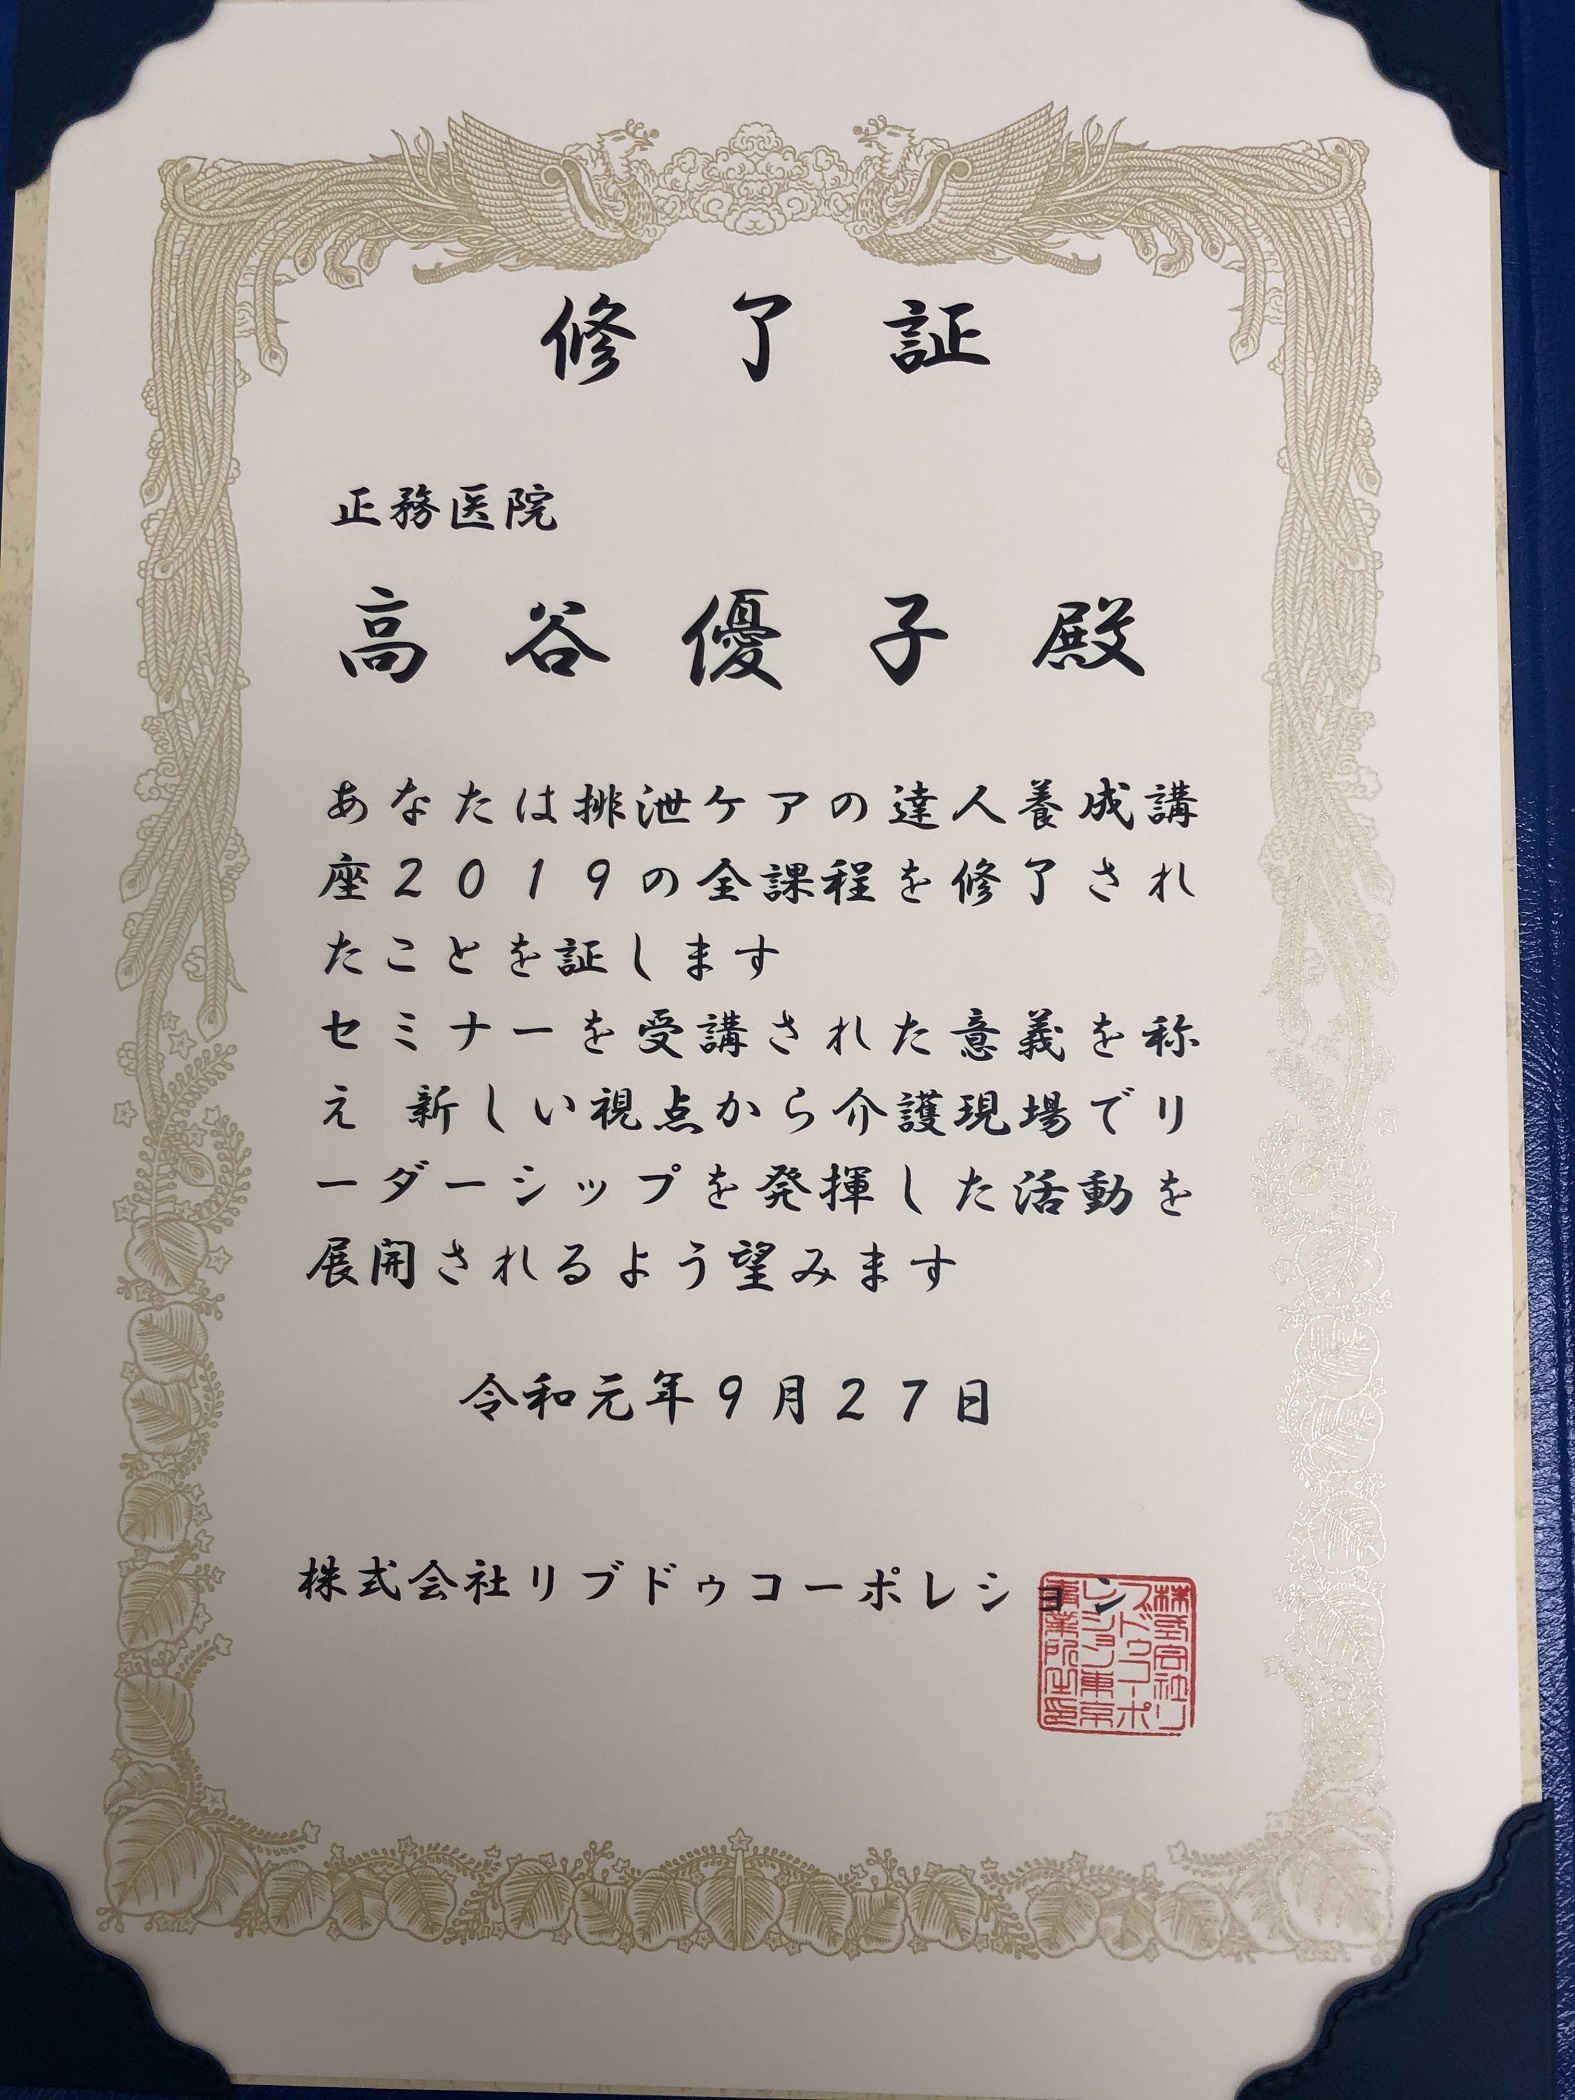 修了証
正務医院
高谷優子殿
あなたは排泄ケアの達人養成講
座2019の全課程を修了され
たことを証します
セミナーを受講された意義を称
え 新しい視点から介護現場でリ
ーダーシップを発揮した活動を
展開されるよう望みます
令和元年9月27日
株式会社リブドゥコーポレション
株式会社リ
ブドゥコーポ
レション東京
事業所之印